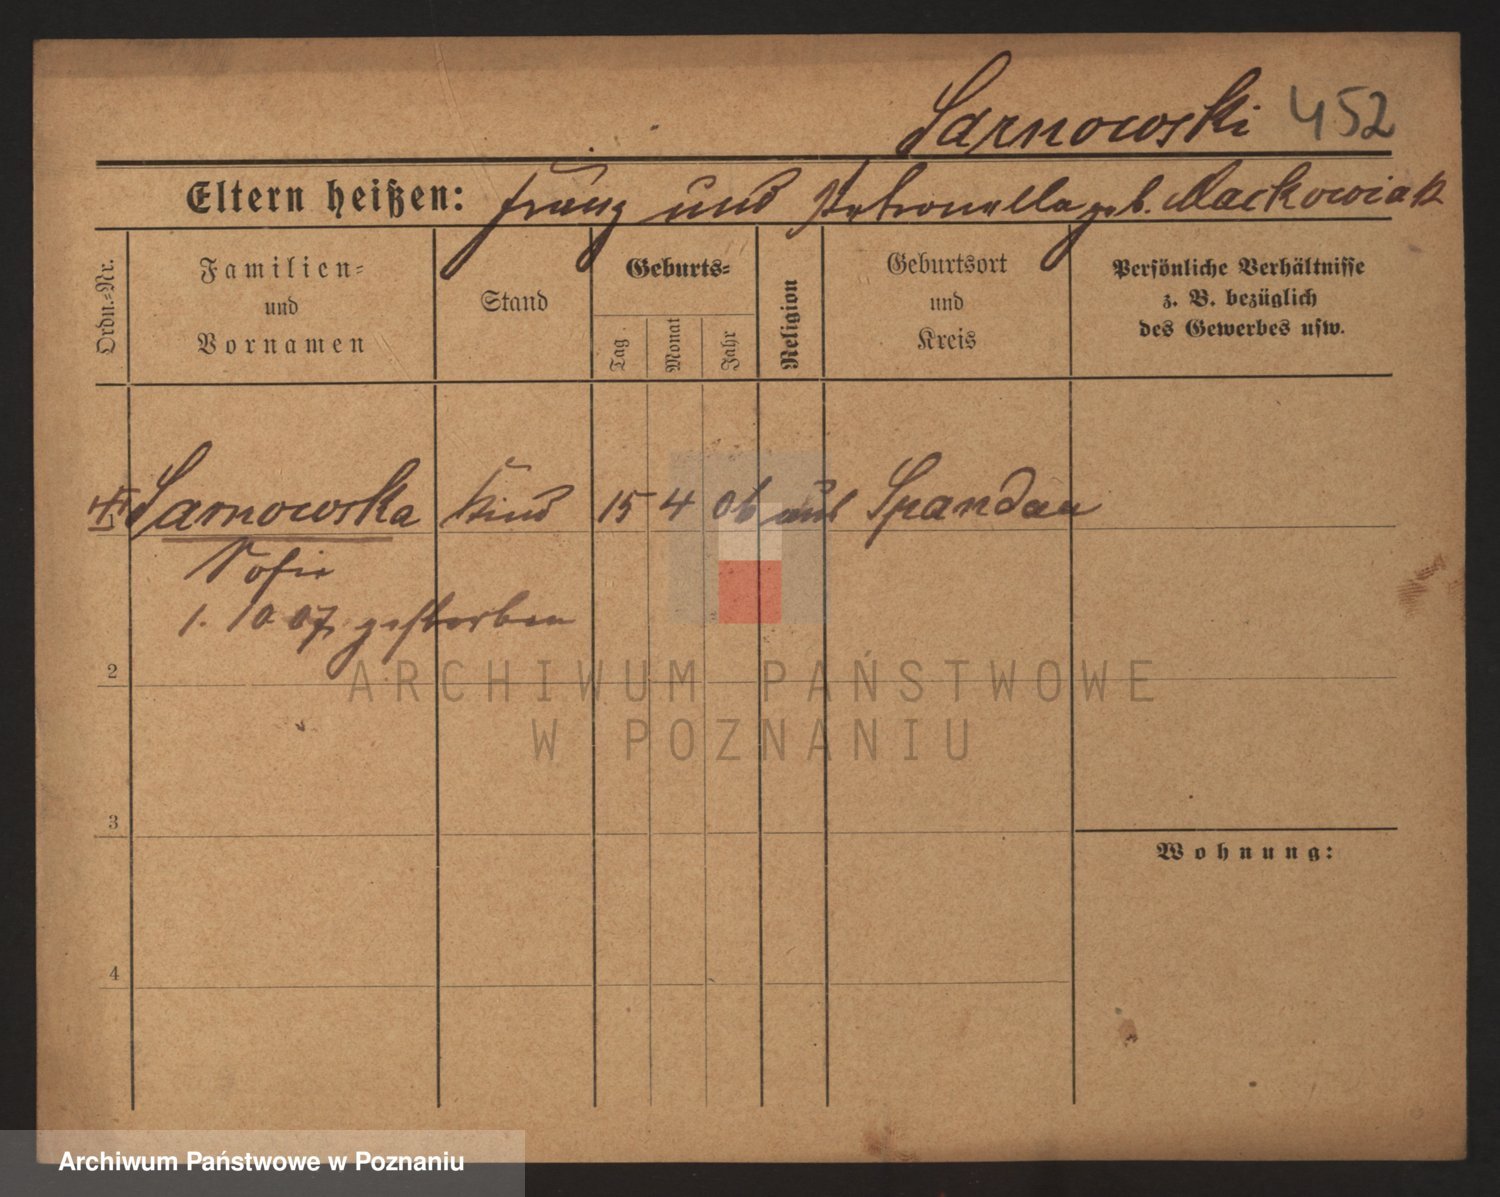 Sarnowski 452
Eltern heißen: Franz und Petronella geb. Mackowiak
Ordn.-Nr.
Familien-
und
Vornamen
Stand
Geburts-
Tag.
Monat
Jahr
Religion
Geburtsort
und
Kreis
Persönliche Verhältnisse
z. B. bezüglich
des Gewerbes usw.
Sarnowska Kind 15 4 06 Spandau
Sofie
1. 10 07 gestorben
2
3
4
Wohnung:
ARCHIWUM PAŃSTWOWE
W POZNANIU
Archiwum Państwowe w Poznaniu